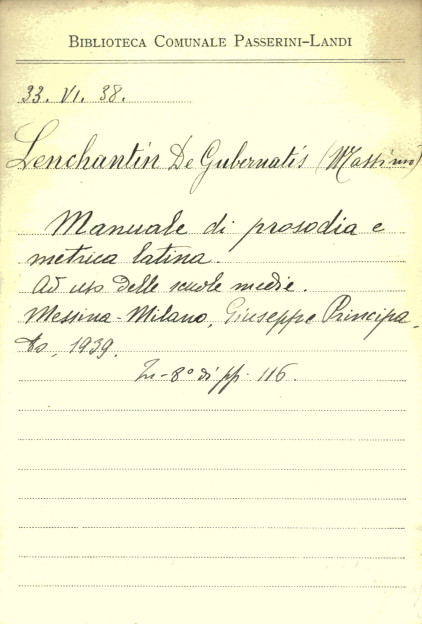 BIBLIOTECA COMUNALE PASSERINI-LANDI
33. VI. 38.
Lenchantin De Gubernatis (Massimo)
Manuale di prosodia e
metrica latina.
Ad uso delle scuole medie.
Messina-Milano, Giuseppe Principa-
to, 1939.
In-8° di pp. 116.